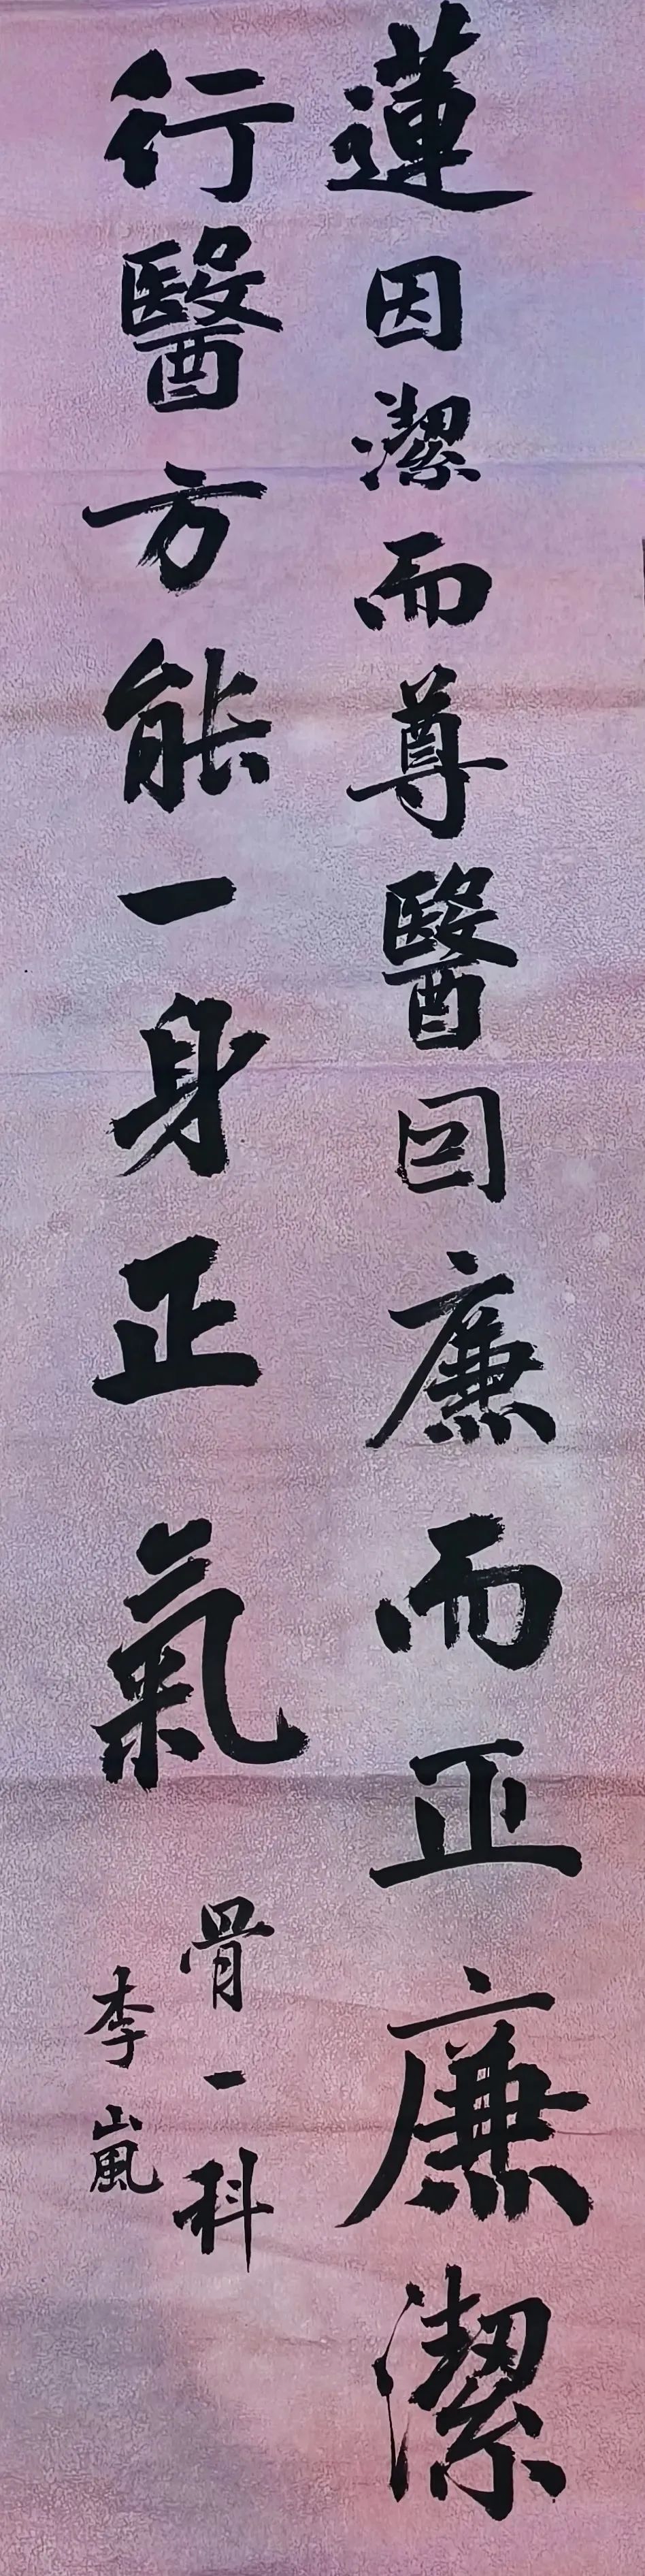 蓮因潔而尊醫回廉而正廉潔
行醫方能一身正氣
骨一科
李嵐